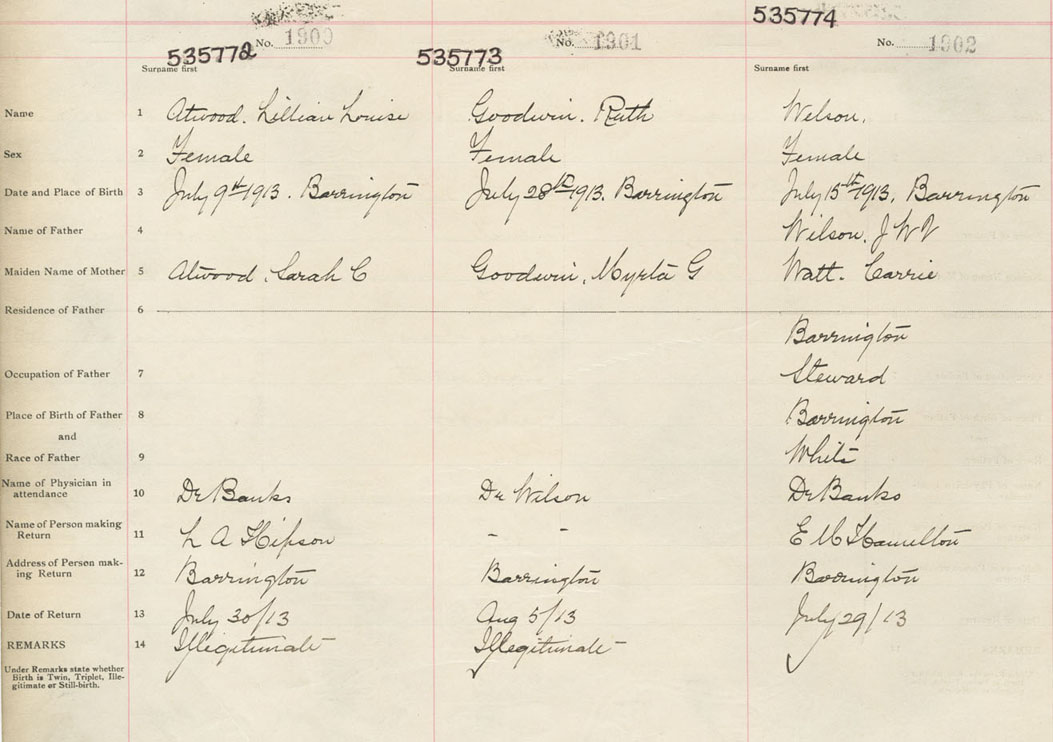 535772 No. 1900 535773 No. 1901 535774 No. 1902
Surname first Surname first Surname first
Name 1 Atwood. Lillian Louise Goodwin. Ruth Wilson,
Sex 2 Female Female Female
Date and Place of Birth 3 July 9th 1913. Barrington July 28th 1913. Barrington July 15th 1913. Barrington
Name of Father 4 Wilson. J W V
Maiden Name of Mother 5 Atwood. Sarah C Goodwin, Myrta G Watt. Carrie
Residence of Father 6
Barrington
Occupation of Father 7 Steward
Place of Birth of Father 8 Barrington
and
Race of Father 9 White
Name of Physician in
attendance 10 Dr Banks Dr Wilson Dr Banks
Name of Person making
Return 11 L A Hipson - - E M Hamilton
Address of Person mak-
ing Return 12 Barrington Barrington Barrington
Date of Return 13 July 30/13 Aug 5/13 July 29/13
REMARKS 14 Illegitimate Illegitimate
Under Remarks state whether
Birth is Twin, Triplet, Ille-
gitimate or Still-birth.